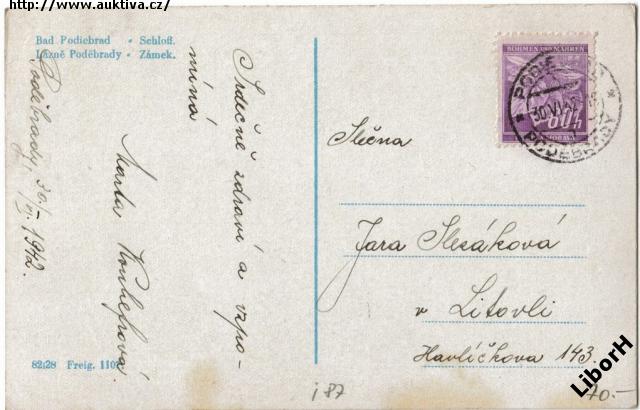 http://www.auktiva.cz/
Bad Podiebrad - Schloß.
Lázně Poděbrady - Zámek.
Poděbrady, 30./VI. 1942.
Srdečně zdraví a vzpo-
míná
Marta
82128 Freig. 110
BÖHMEN UND MÄHREN
60h
30.VI.42
PODĚBRADY
Slečna
Jara Slezáková
v Litovli
Havlíčkova 143.
i 87
70.-
LiborH